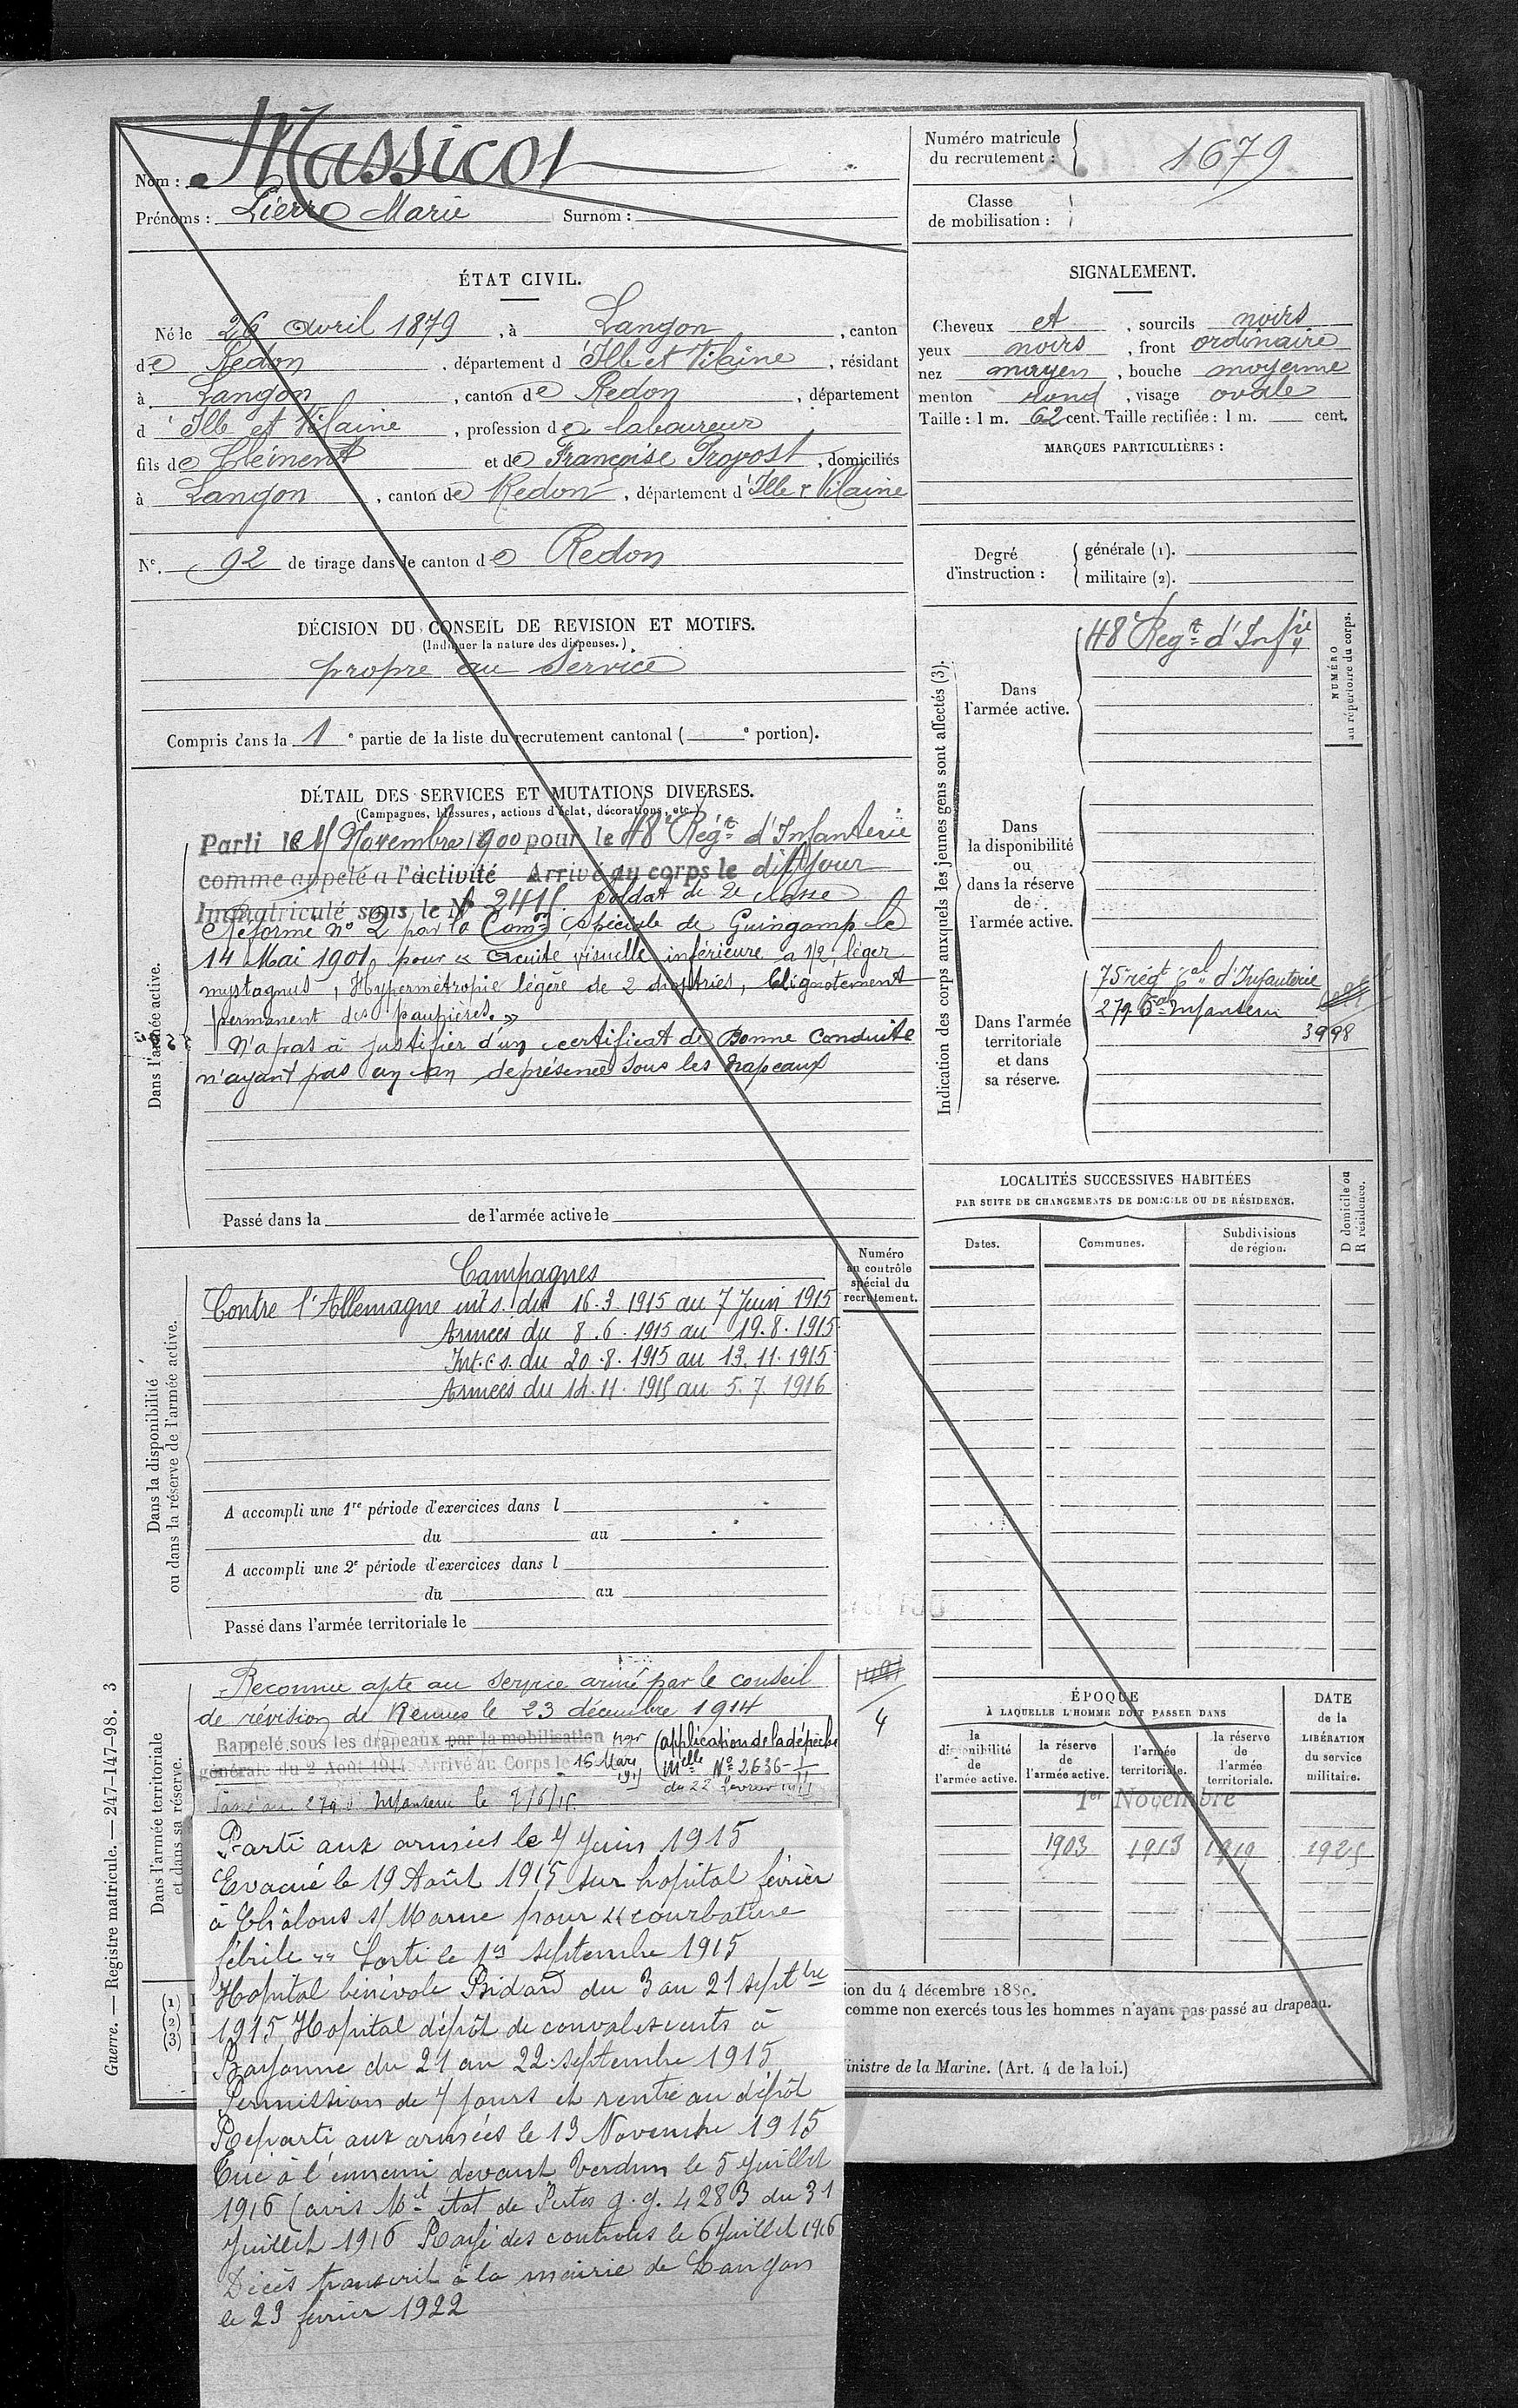 Nom : Massicot
Prénoms : Pierre Marie Surnom :
Numéro matricule du recrutement : 1679
Classe de mobilisation :
ÉTAT CIVIL.
Né le 26 avril 1879, à Langon, canton
de Redon, département d'Ille et Vilaine, résidant
à Langon, canton de Redon, département
d'Ille et Vilaine, profession de laboureur
fils de Clément et de Françoise Provost, domiciliés
à Langon, canton de Redon, département d'Ille & Vilaine
N° 92 de tirage dans le canton de Redon
SIGNALEMENT.
Cheveux et, sourcils noirs
yeux noirs, front ordinaire
nez moyen, bouche moyenne
menton rond, visage ovale
Taille : 1 m. 62 cent. Taille rectifiée : 1 m. cent.
MARQUES PARTICULIÈRES :
Degré d'instruction : générale (1).
militaire (2).
DÉCISION DU CONSEIL DE REVISION ET MOTIFS.
(Indiquer la nature des dispenses.)
propre au service
Compris dans la 1e partie de la liste du recrutement cantonal ( e portion).
DÉTAIL DES SERVICES ET MUTATIONS DIVERSES.
(Campagnes, blessures, actions d'éclat, décorations, etc.)
Dans l'armée active.
Parti le Novembre 1900 pour le 48e Régt d'Infanterie
comme appelé à l'activité Arrivé au corps le dit jour
Immatriculé sous le N° soldat de 2e classe
Réformé N° 2 par la Comon Spéciale de Guingamp le
14 Mai 1901 pour « acuité visuelle inférieure a 1/2, léger
nystagnus, Hypermétropie légère de 2 dioptries, Clignotement
permanent des paupières. »
N'a pas à justifier d'un certificat de Bonne Conduite
n'ayant pas un an de présence sous les drapeaux
Passé dans la de l'armée active le
Indication des corps auxquels les jeunes gens sont affectés (3).
NUMÉRO au répertoire du corps.
Dans l'armée active.
48 Regt d'Infie
Dans la disponibilité ou dans la réserve de l'armée active.
Dans l'armée territoriale et dans sa réserve.
75e régt Cal d'Infanterie
279 d'Infanterie
3998
LOCALITÉS SUCCESSIVES HABITÉES
PAR SUITE DE CHANGEMENTS DE DOMICILE OU DE RÉSIDENCE.
Dates. Communes. Subdivisions de région. D domicile ou R résidence.
Dans la disponibilité ou dans la réserve de l'armée active.
Numéro au contrôle spécial du recrutement.
Campagnes
Contre l'Allemagne int s. du 16.3.1915 au 7 Juin 1915
Armées du 8.6.1915 au 19.8.1915
Int. c s. du 20.8.1915 au 13.11.1915
Armées du 14.11.1915 au 5.7.1916
A accompli une 1re période d'exercices dans l
du au
A accompli une 2e période d'exercices dans l
du au
Passé dans l'armée territoriale le
Dans l'armée territoriale et dans sa réserve.
Reconnu apte au service armé par le conseil
de révision de Rennes le 23 décembre 1914
Rappelé sous les drapeaux par la mobilisation par (application de la dépêche
générale du 2 Août 1914. Arrivé au Corps le 16 Mars 1915 Mlle N° 2636-
du 22 février
Passé au 279 d'Infanterie le 7/6/15.
4
Parti aux armées le 7 Juin 1915
Evacué le 19 Août 1915 sur hopital février
à Châlons s/ Marne pour « courbature
fébrile » Sorti le 1er septembre 1915
Hopital bénévole Bidard du 3 au 21 septbre
1915 Hopital dépôt de convalescents à
Bayonne du 21 au 22 septembre 1915
Permission de 7 jours et rentré au dépôt
Reparti aux armées le 13 Novembre 1915
Tué à l'ennemi devant Verdun le 5 Juillet
1916 (avis Mel état de Pertes g.g. 4283 du 31
Juillet 1916 Rayé des contrôles le 6 Juillet 1916
Décès transcrit à la mairie de Langon
le 23 février 1922
ÉPOQUE
À LAQUELLE L'HOMME DOIT PASSER DANS
la disponibilité de l'armée active.
la réserve de l'armée active.
l'armée territoriale.
la réserve de l'armée territoriale.
DATE de la LIBÉRATION du service militaire.
1er Novembre
1903 1913 1919 1925
(1)
(2)
(3)
ion du 4 décembre 1889.
comme non exercés tous les hommes n'ayant pas passé au drapeau.
inistre de la Marine. (Art. 4 de la loi.)
Guerre. — Registre matricule. — 247-147-98. 3